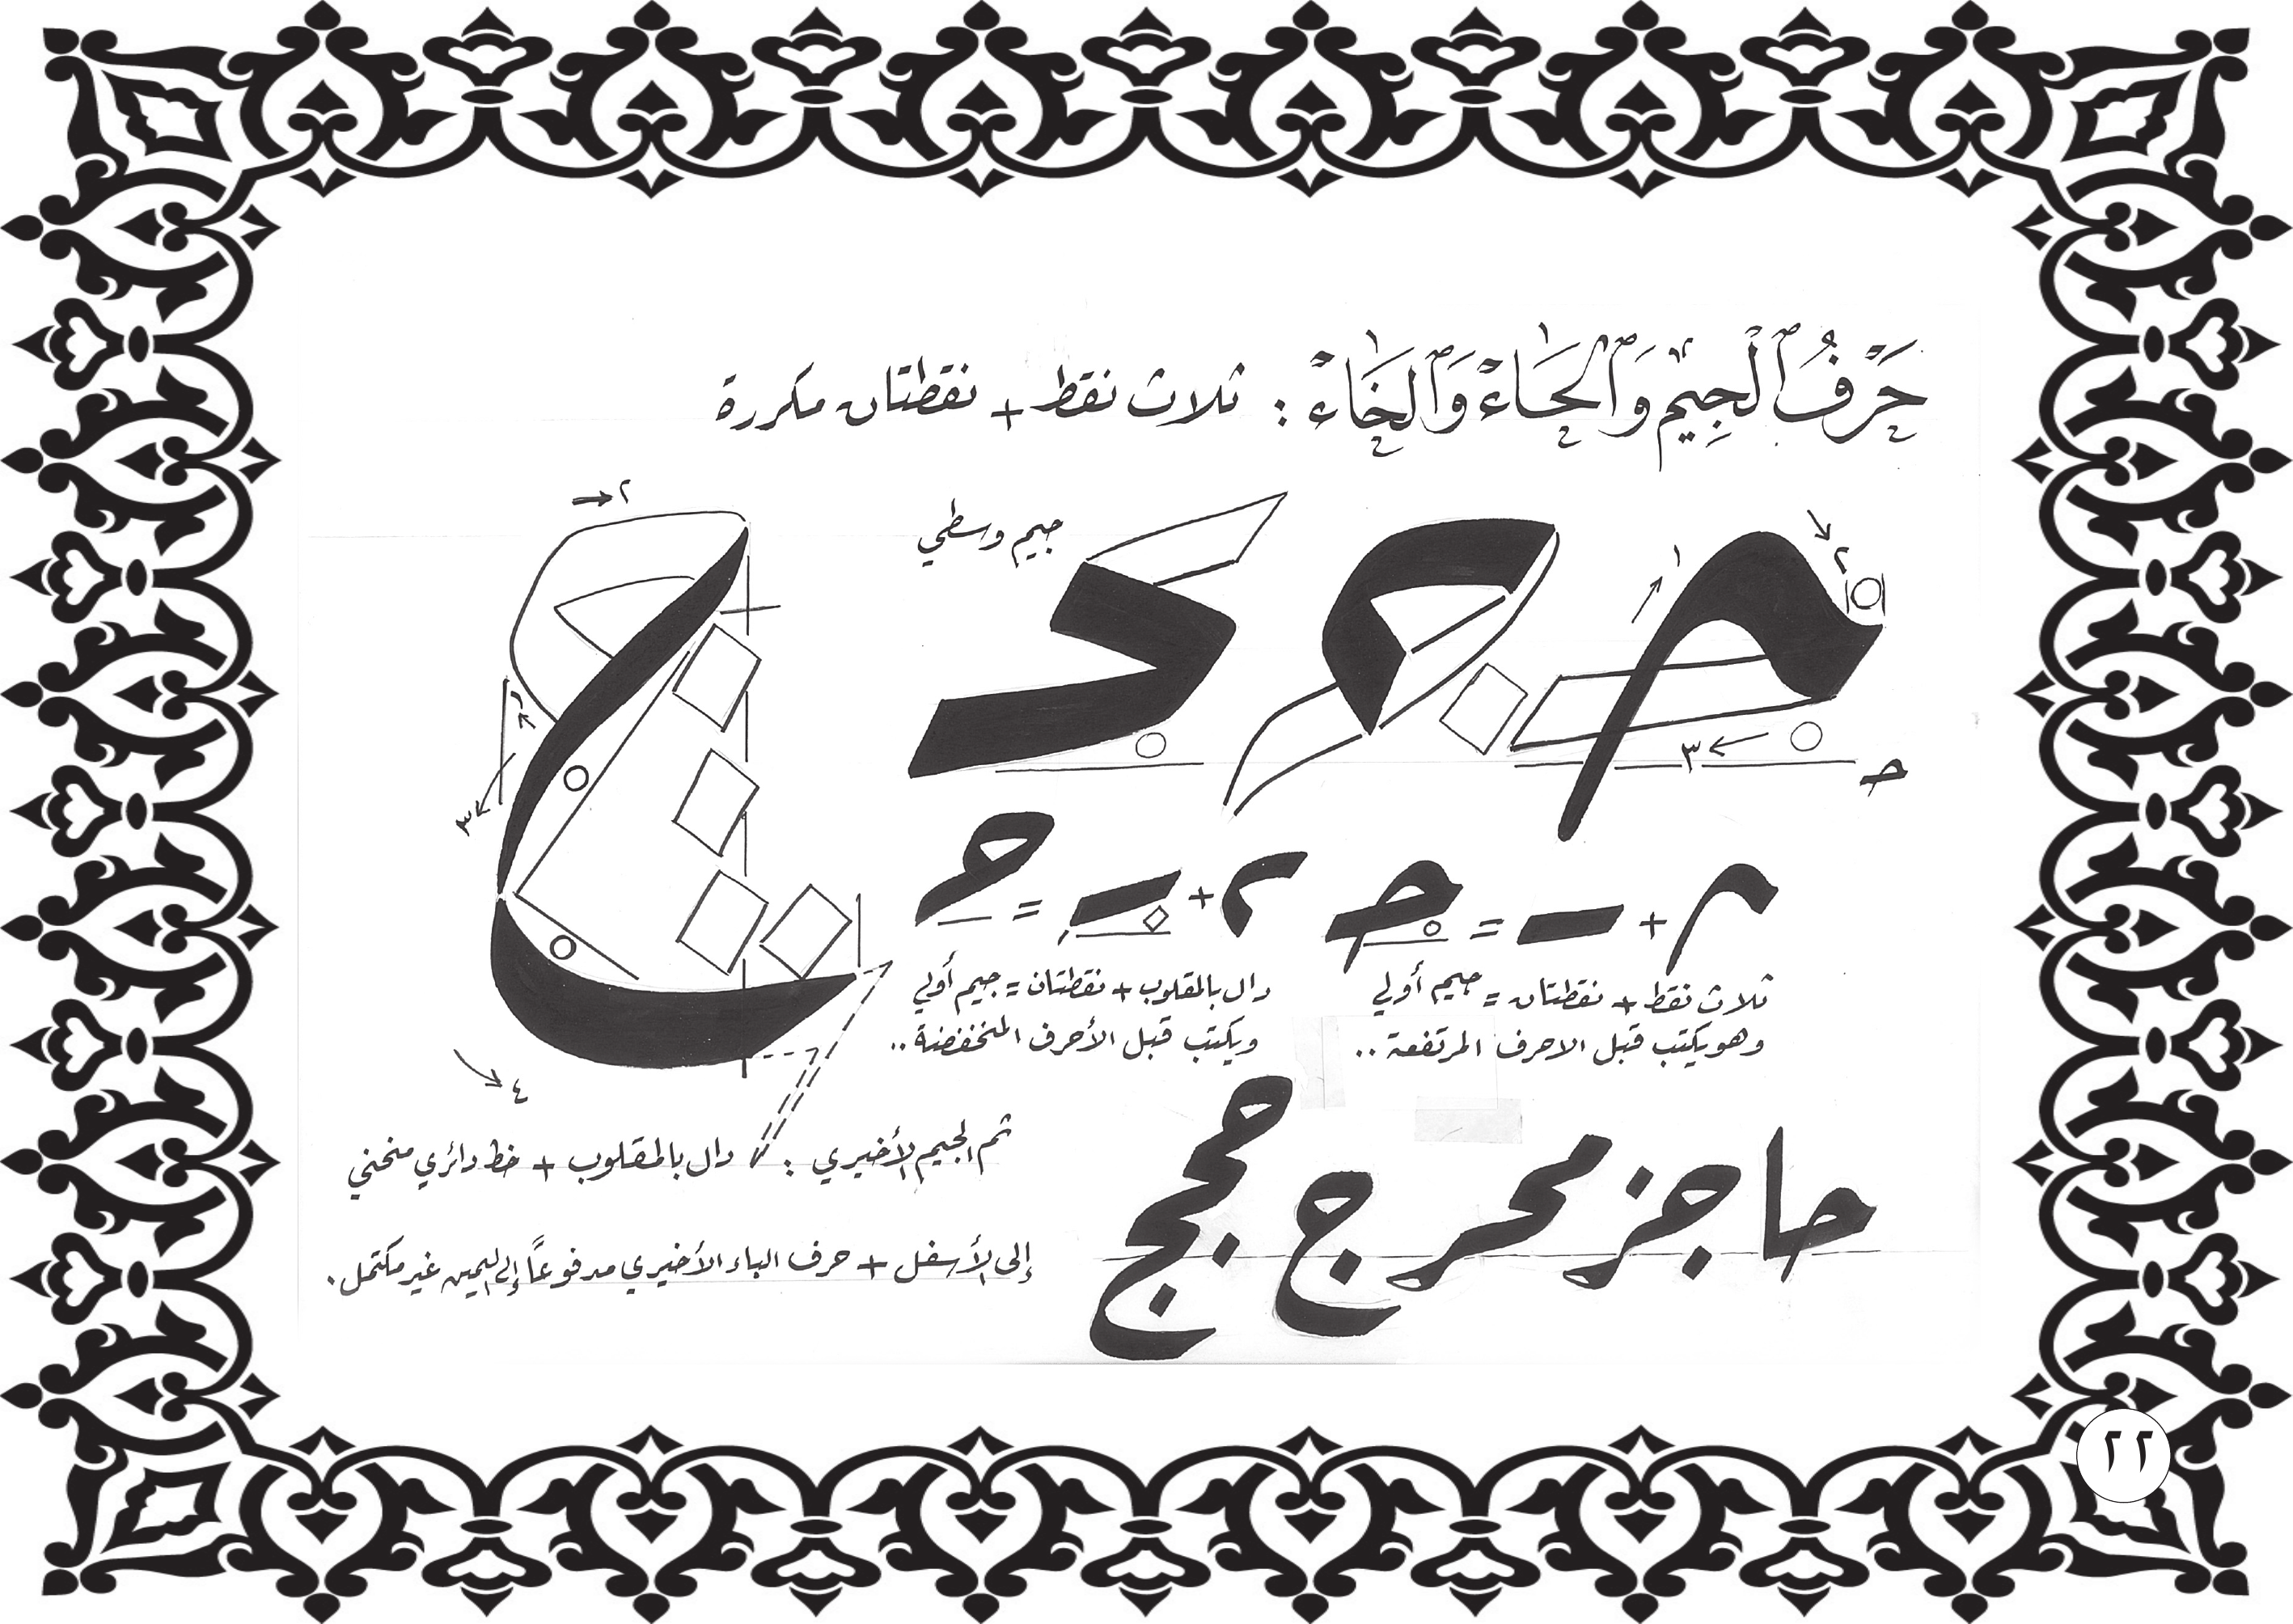 حَرْفُ ٱلْجِيمِ وَٱلْحَاءْ وَٱلْخَاءْ : ثلاث نقط + نقطتان مكررة
جيم وسطي
١
٢
٣
ح
٢
٣
٤
ثلاث نقط + نقطتان = جيم أولي
وهو يكتب قبل الاحرف المرتفعة ..
دال بالمقلوب + نقطتان = جيم أولي
ويكتب قبل الأحرف المنخفضة ..
ثم الجيم الأخيري : دال بالمقلوب + خط دائري منحني
إلى الأسفل + حرف الباء الأخيري مدفوعاً إلى اليمين غير مكتمل .
حا جز محر ج حجج
٢٢